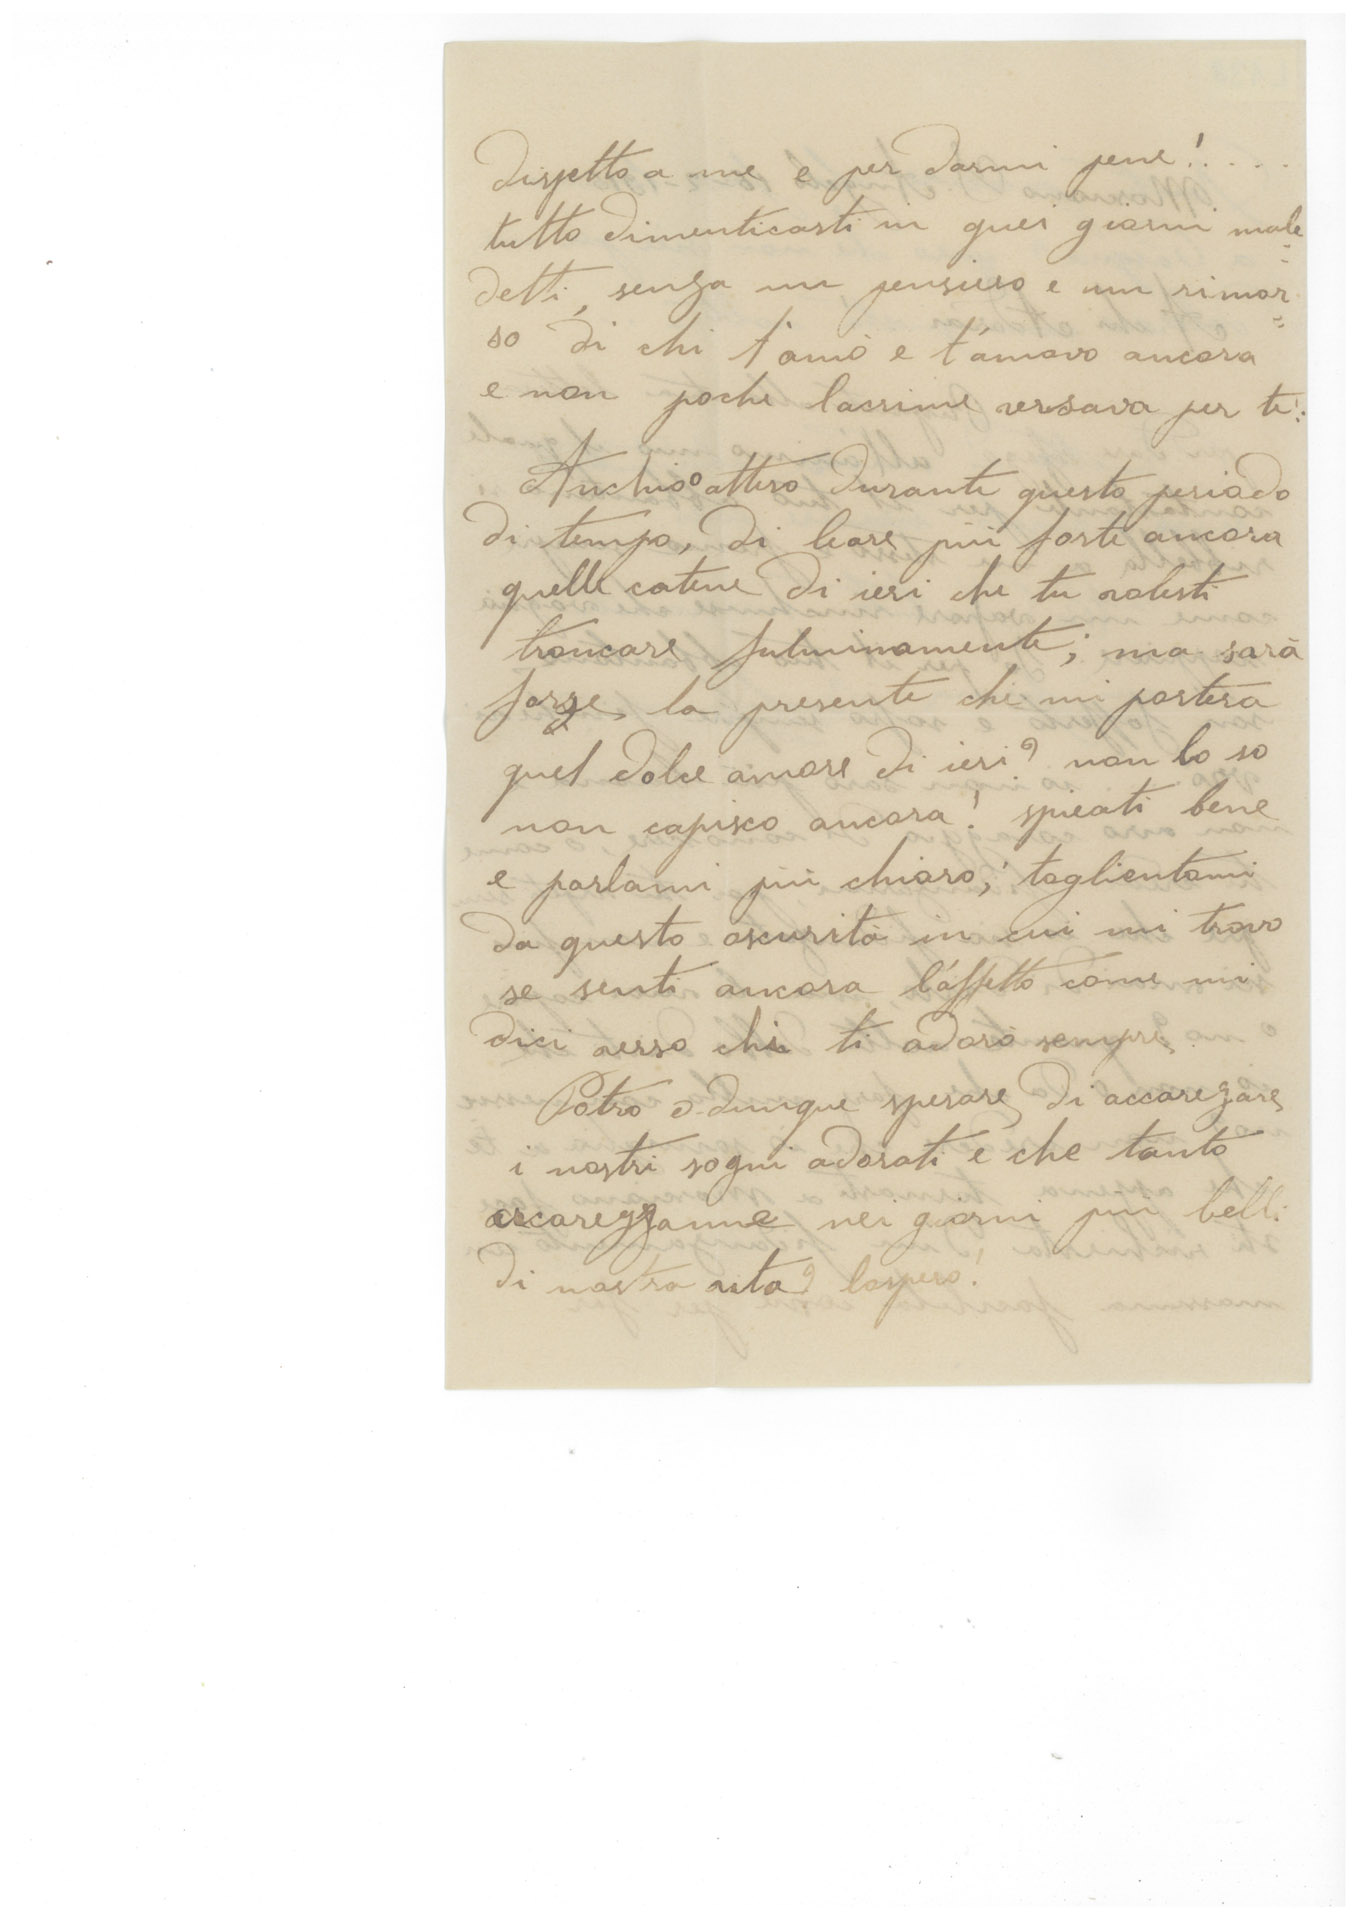 dispetto a me e per darmi pene!....
tutto dimenticasti in quei giorni male=
detti, senza un pensiero e un rimor=
so di chi t'amò e t'amavo ancora
e non poche lacrime versava per te!:
Anchio attero durante questo periodo
di tempo, di leare più forte ancora
quelle catene di ieri che tu volesti
troncare fulminamente; ma sarà
forse la presente che mi porterà
quel dolce amore di ieri? non lo so
non capisco ancora! spieati bene
e parlami più chiaro; taglientami
da questo oscurità in cui mi trovo
se senti ancora l'affetto come mi
dici verso chi ti adorò sempre
Potro odunque sperare di accarezare
i nostri sogni adorati e che tanto
accarezzanne nei giorni più belli
di nostra vita? lospero!